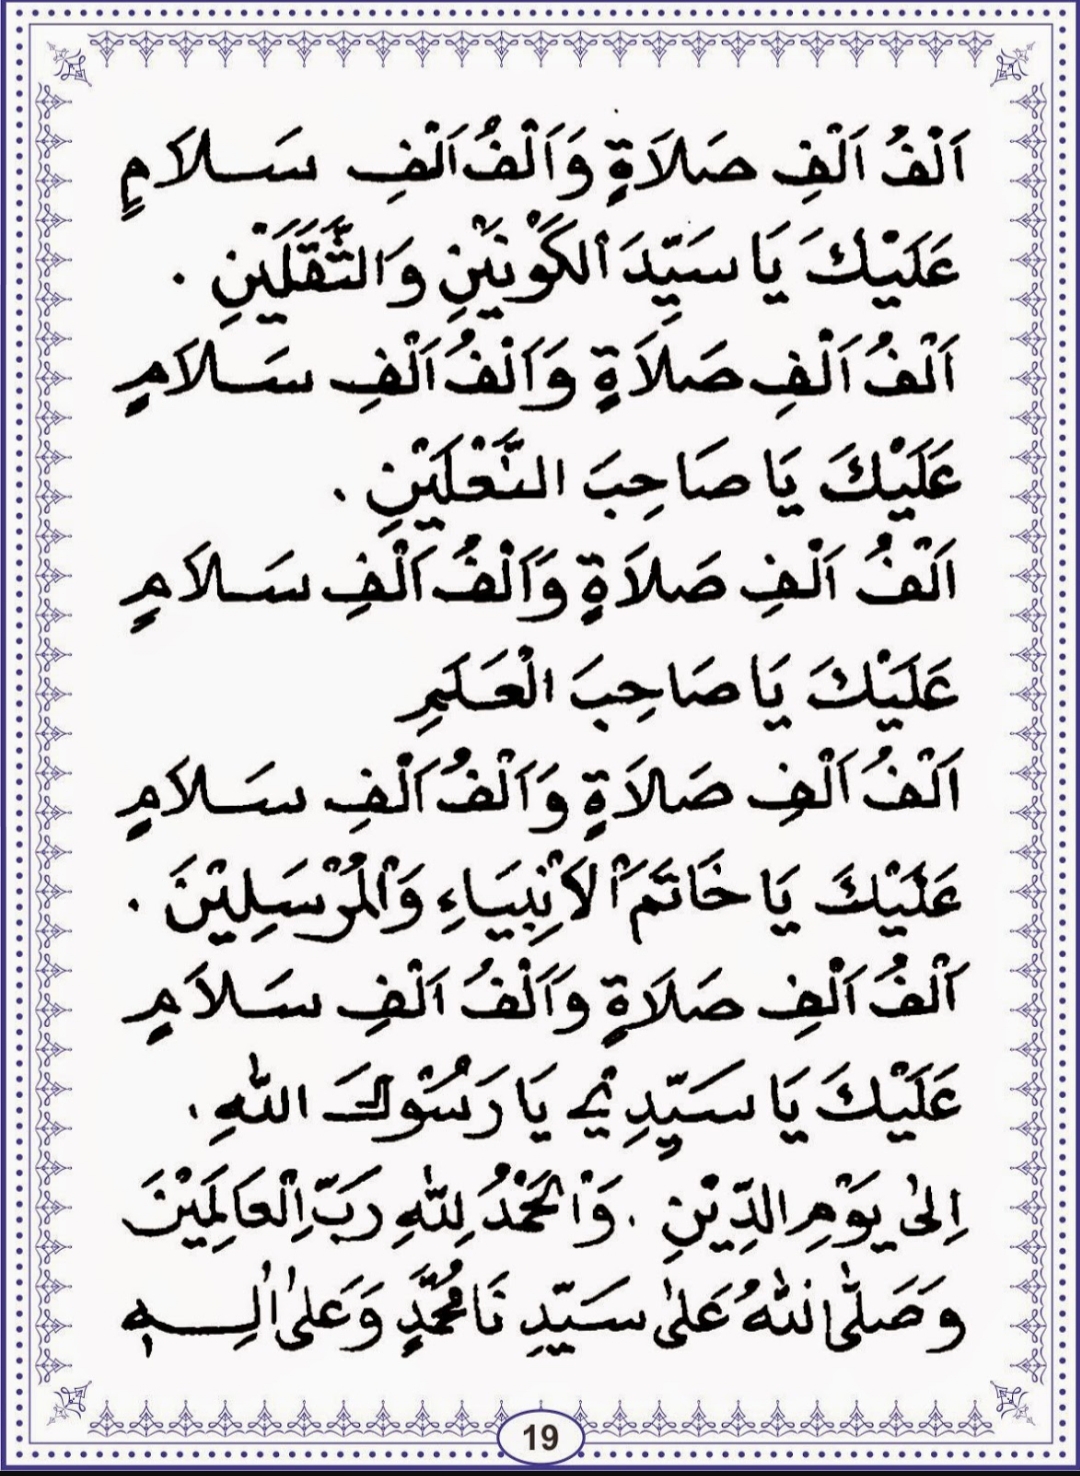 اَلْفُ اَلْفِ صَلَاةٍ وَاَلْفُ اَلْفِ سَلَامٍ
عَلَيْكَ يَا سَيِّدَ الْكَوْنَيْنِ وَالثَّقَلَيْنِ .
اَلْفُ اَلْفِ صَلَاةٍ وَاَلْفُ اَلْفِ سَلَامٍ
عَلَيْكَ يَا صَاحِبَ النَّعْلَيْنِ .
اَلْفُ اَلْفِ صَلَاةٍ وَاَلْفُ اَلْفِ سَلَامٍ
عَلَيْكَ يَا صَاحِبَ الْعَلَمِ
اَلْفُ اَلْفِ صَلَاةٍ وَاَلْفُ اَلْفِ سَلَامٍ
عَلَيْكَ يَا خَاتَمَ الْاَنْبِيَاءِ وَالْمُرْسَلِيْنَ .
اَلْفُ اَلْفِ صَلَاةٍ وَاَلْفُ اَلْفِ سَلَامٍ
عَلَيْكَ يَا سَيِّدِيْ يَا رَسُوْلَ اللهِ .
اِلىٰ يَوْمِ الدِّيْنِ . وَالْحَمْدُ لِلّٰهِ رَبِّ الْعَالَمِيْنَ
وَصَلَّى اللهُ عَلىٰ سَيِّدِنَا مُحَمَّدٍ وَعَلىٰ اٰلِهٖ
19